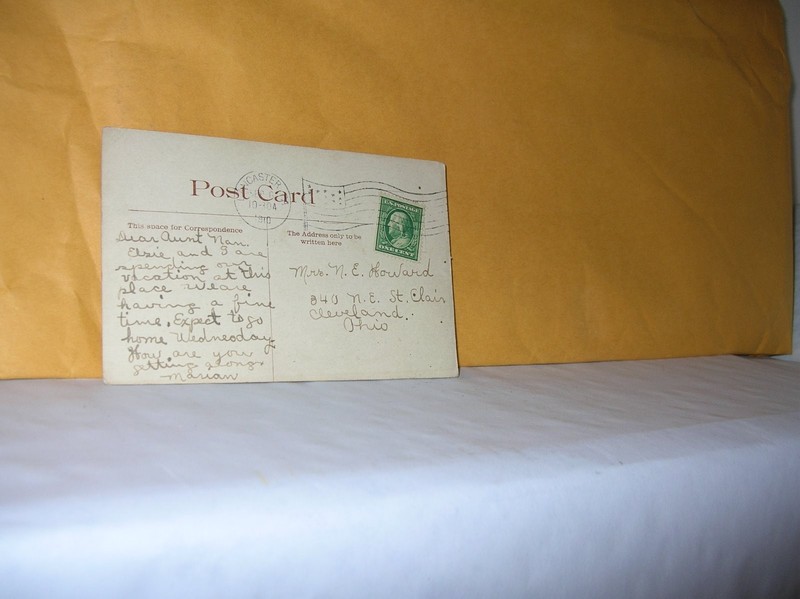 Post Card
CASTER
10-30A
1910
U.S. POSTAGE
ONE CENT
This space for Correspondence
The Address only to be
written here
Dear Aunt Nan.
Elzie and I are
spending our
vacation at this
place we are
having a fine
time. Expect to go
home Wednesday
How are you
getting along
Marian
Mrs. N. E. Howard
840 N.E. St. Clair
Cleveland.
Ohio